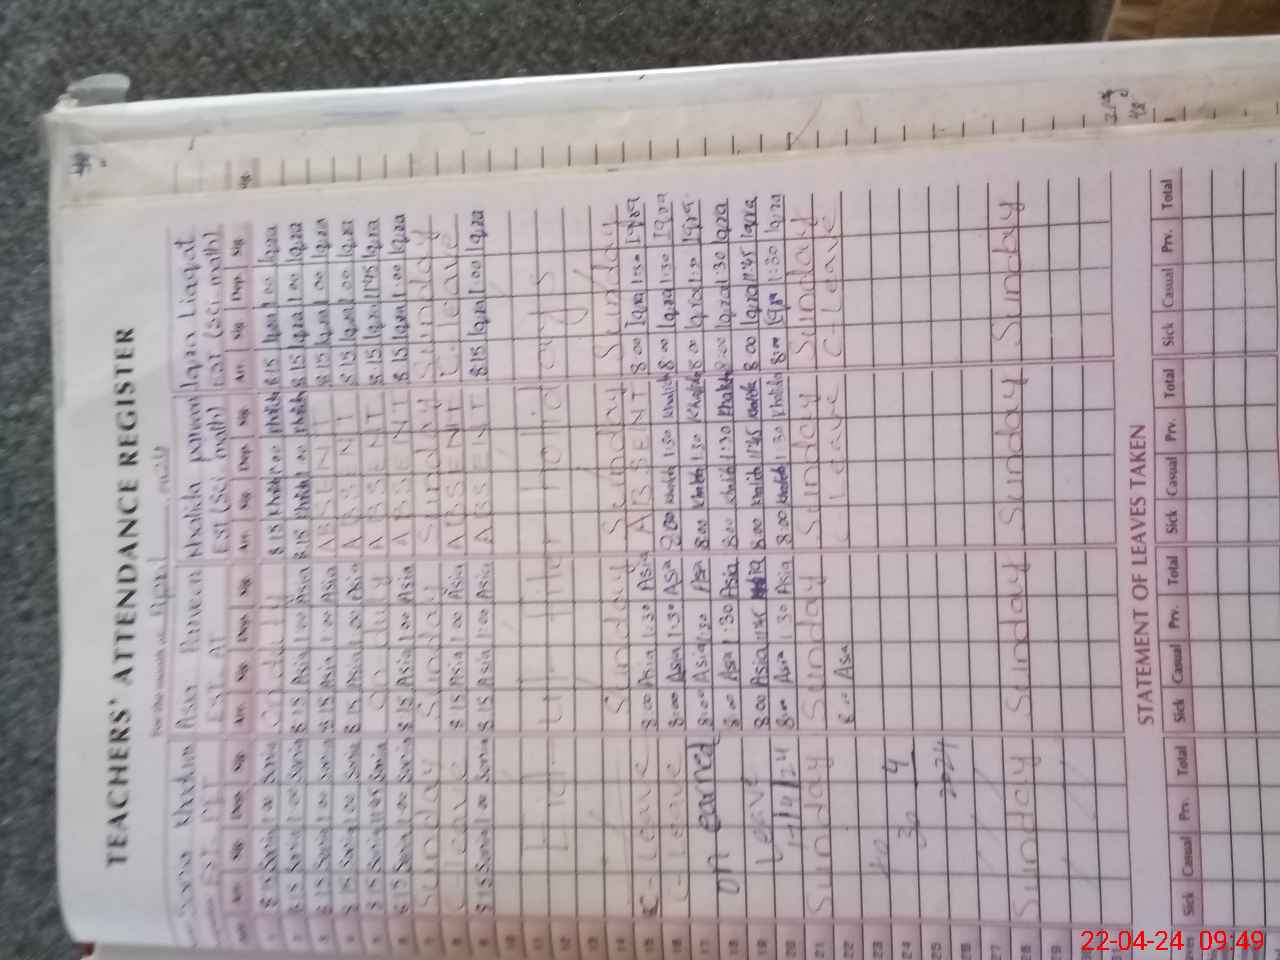 TEACHERS' ATTENDANCE REGISTER
For the month of April 2024
Sonia Khadim Asia Parveen Khalida parveen Iqra Liaqat
EST PET EST AT EST (Sci math) EST (Sci math)
Date Arr. Sig Dep. Sig Arr. Sig Dep. Sig Arr. Sig Dep. Sig Arr. Sig Dep. Sig.
1 8 15 Sonia 1 00 Sonia On duty 8 15 Khalida 1 00 Khalida 8 15 Iqra 1 00 Iqra
2 8 15 Sonia 1 00 Sonia 8 15 Asia 1 00 Asia 8 15 Khalida 1 00 Khalida 8 15 Iqra 1 00 Iqra
3 8 15 Sonia 1 00 Sonia 8 15 Asia 1 00 Asia ABSENT 8 15 Iqra 1 00 Iqra
4 8 15 Sonia 1 00 Sonia 8 15 Asia 1 00 Asia ABSENT 8 15 Iqra 1 00 Iqra
5 8 15 Sonia 11:45 Sonia On duty ABSENT 8 15 Iqra 11:45 Iqra
6 8 15 Sonia 1 00 Sonia 8 15 Asia 1 00 Asia ABSENT 8 15 Iqra 1:00 Iqra
7 Sunday Sunday Sunday Sunday
8 C-leave 8 15 Asia 1 00 Asia ABSENT C-leave
9 8 15 Sonia 1 00 Sonia 8 15 Asia 1:00 Asia ABSENT 8 15 Iqra 1:00 Iqra
10
11 Eid-Ul-Fiter holidays
12
13
14 Sunday Sunday Sunday
15 C-leave 8:00 Asia 1:30 Asia ABSENT 8 00 Iqra 1:30 Iqra
16 C-leave 8:00 Asia 1:30 Asia 8:00 Khalida 1:30 Khalida 8 00 Iqra 1:30 Iqra
17 8:00 Asia 1:30 Asia 8:00 Khalida 1:30 Khalida 8:00 Iqra 1:30 Iqra
18 on earned 8:00 Asia 1:30 Asia 8:00 Khalida 1:30 Khalida 8:00 Iqra 1:30 Iqra
19 Leave 8:00 Asia 11:45 Asia 8:00 Khalida 11:45 Khalida 8 00 Iqra 11:45 Iqra
20 17/4/24 8:00 Asia 1:30 Asia 8:00 Khalida 1:30 Khalida 8:00 Iqra 1:30 Iqra
21 Sunday Sunday Sunday Sunday
22 8:00 Asia C-Leave C-Leave
23 to
24 30 4
25 2024
26
27
28 Sunday Sunday Sunday Sunday
29
30
31
STATEMENT OF LEAVES TAKEN
Sick Casual Prv. Total Sick Casual Prv. Total Sick Casual Prv. Total Sick Casual Prv. Total
22-04-24 09:49